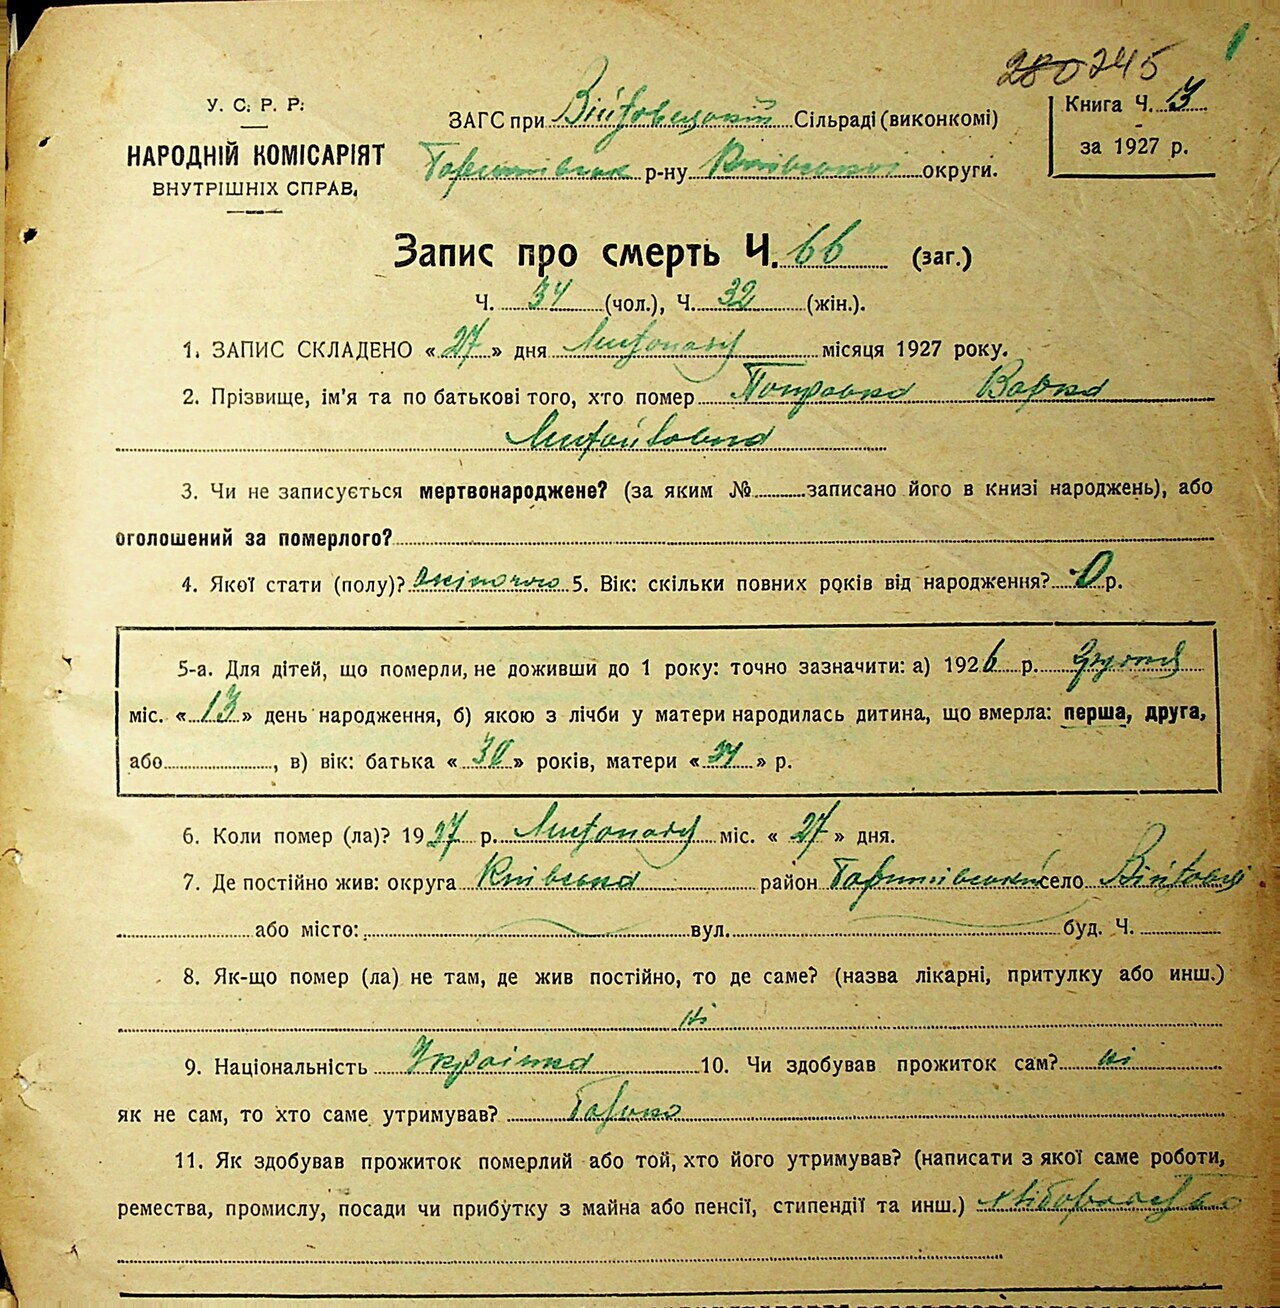 280745
У. С. Р. Р.
НАРОДНІЙ КОМІСАРІЯТ
ВНУТРІШНІХ СПРАВ.
ЗАГС при Війтовецькій Сільраді (виконкомі)
р-ну Київської округи.
Книга Ч. 13
за 1927 р.
Запис про смерть Ч. 66 (заг.)
Ч. 34 (чол.), Ч. 32 (жін.).
1. ЗАПИС СКЛАДЕНО « 27 » дня Листопаду місяця 1927 року.
2. Прізвище, ім'я та по батькові того, хто помер Варка
Михайловна
3. Чи не записується мертвонароджене? (за яким № записано його в книзі народжень), або
оголошений за померлого?
4. Якої стати (полу)? жіночого 5. Вік: скільки повних років від народження? 0 р.
5-а. Для дітей, що померли, не доживши до 1 року: точно зазначити: а) 1926 р. Грудня
міс. « 13 » день народження, б) якою з лічби у матери народилась дитина, що вмерла: перша, друга,
або , в) вік: батька « 30 » років, матери « » р.
6. Коли помер (ла)? 1927 р. Листопаду міс. « 27 » дня.
7. Де постійно жив: округа Київська район село Війтовці
або місто: вул. буд. Ч.
8. Як-що помер (ла) не там, де жив постійно, то де саме? (назва лікарні, притулку або инш.)
ні
9. Національність Українка 10. Чи здобував прожиток сам? ні
як не сам, то хто саме утримував? Батько
11. Як здобував прожиток померлий або той, хто його утримував? (написати з якої саме роботи,
ремества, промислу, посади чи прибутку з майна або пенсії, стипендії та инш.) хліборобство